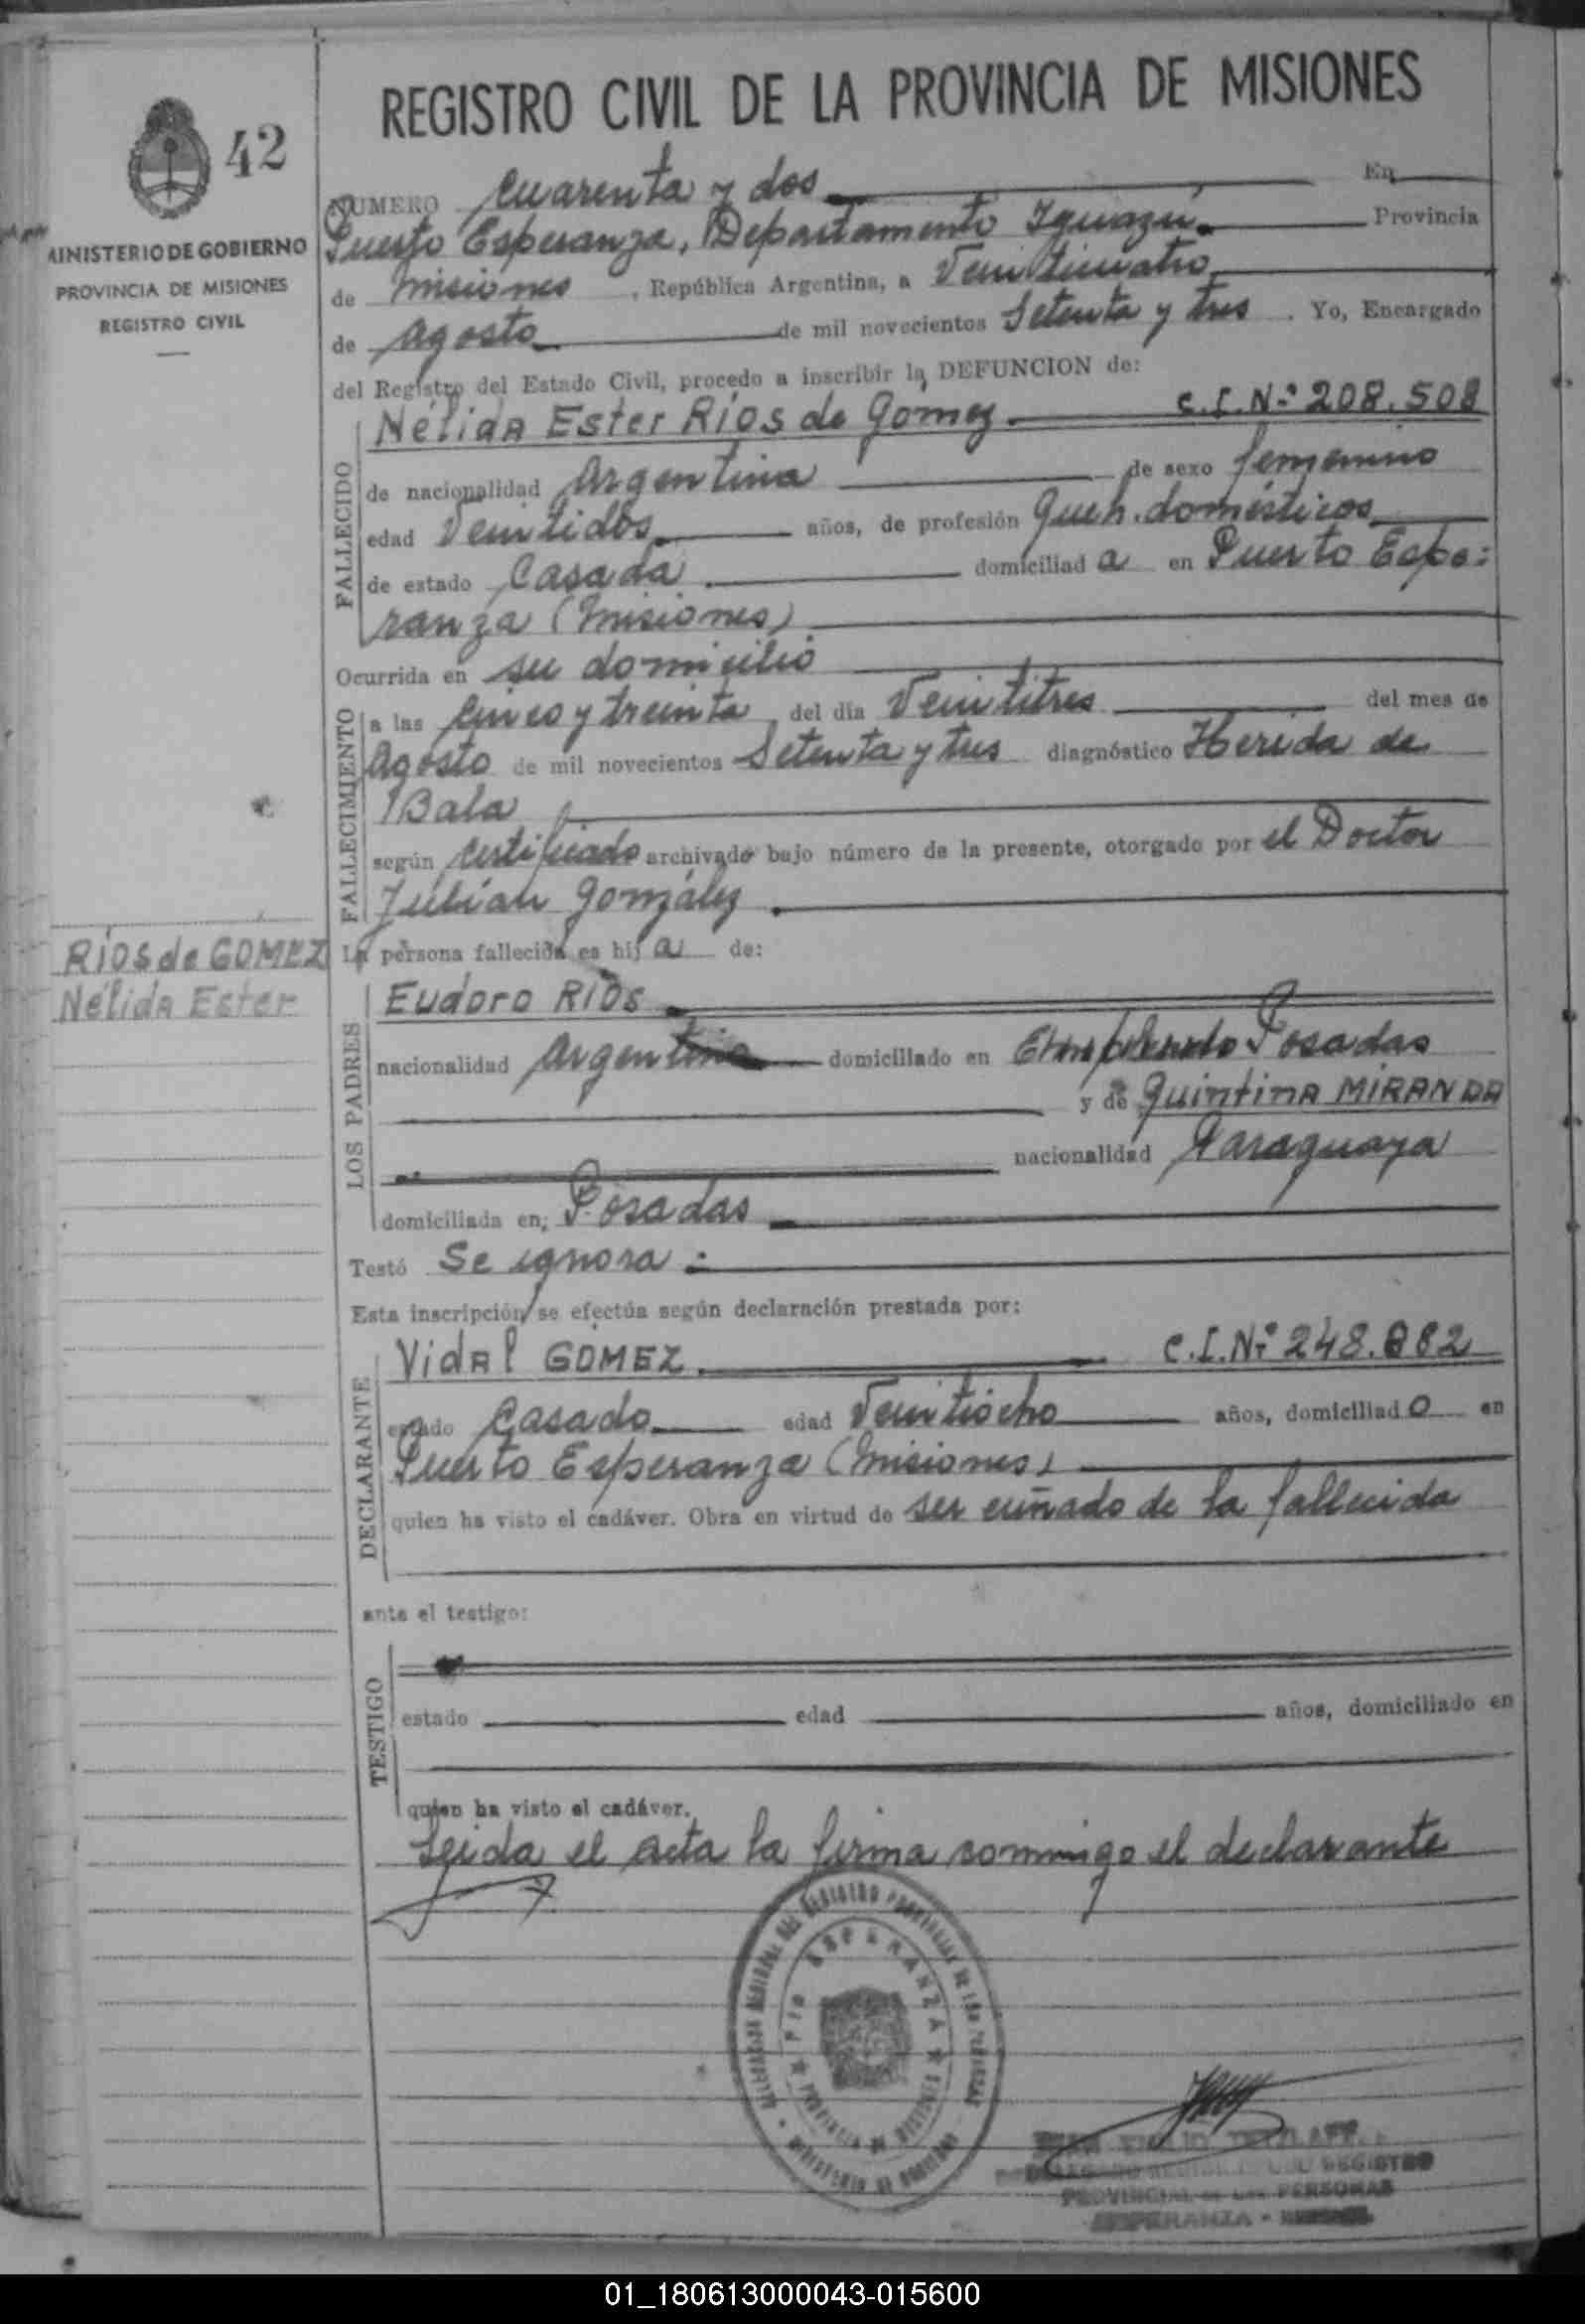 REGISTRO CIVIL DE LA PROVINCIA DE MISIONES
42
MINISTERIO DE GOBIERNO
PROVINCIA DE MISIONES
REGISTRO CIVIL
NUMERO Cuarenta y dos En
Puerto Esperanza, Departamento Iguazú. Provincia
de Misiones, República Argentina, a Veinticuatro
de Agosto de mil novecientos Setenta y tres. Yo, Encargado
del Registro del Estado Civil, procedo a inscribir la DEFUNCION de:
FALLECIDO
Nélida Ester Ríos de Gómez. C.I.Nº 208.508
de nacionalidad Argentina de sexo femenino
edad Veintidós años, de profesión Queh. domésticos
de estado Casada domiciliada en Puerto Espe:
ranza (Misiones)
Ocurrida en su domicilio
FALLECIMIENTO
a las Cinco y treinta del día Veintitres del mes de
Agosto de mil novecientos Setenta y tres diagnóstico Herida de
Bala
según Certificado archivado bajo número de la presente, otorgado por el Doctor
Julián González
RÍOS de GOMEZ
Nélida Ester
La persona fallecida es hija de:
LOS PADRES
Eudoro RÍOS
nacionalidad Argentina domiciliado en Posadas
y de Quintina MIRANDA
nacionalidad Paraguaya
domiciliada en: Posadas
Testó Se ignora
Esta inscripción se efectúa según declaración prestada por:
DECLARANTE
Vidal GOMEZ C.I.Nº 248.882
estado Casado edad Veintiocho años, domiciliado en
Puerto Esperanza (Misiones)
quien ha visto el cadáver. Obra en virtud de ser cuñado de la fallecida
ante el testigo:
TESTIGO
estado edad años, domiciliado en
quien ha visto el cadáver.
Leida el acta la firma conmigo el declarante
ESPERANZA
REGISTRO
PROVINCIAL DE LAS PERSONAS
ESPERANZA
01_180613000043-015600